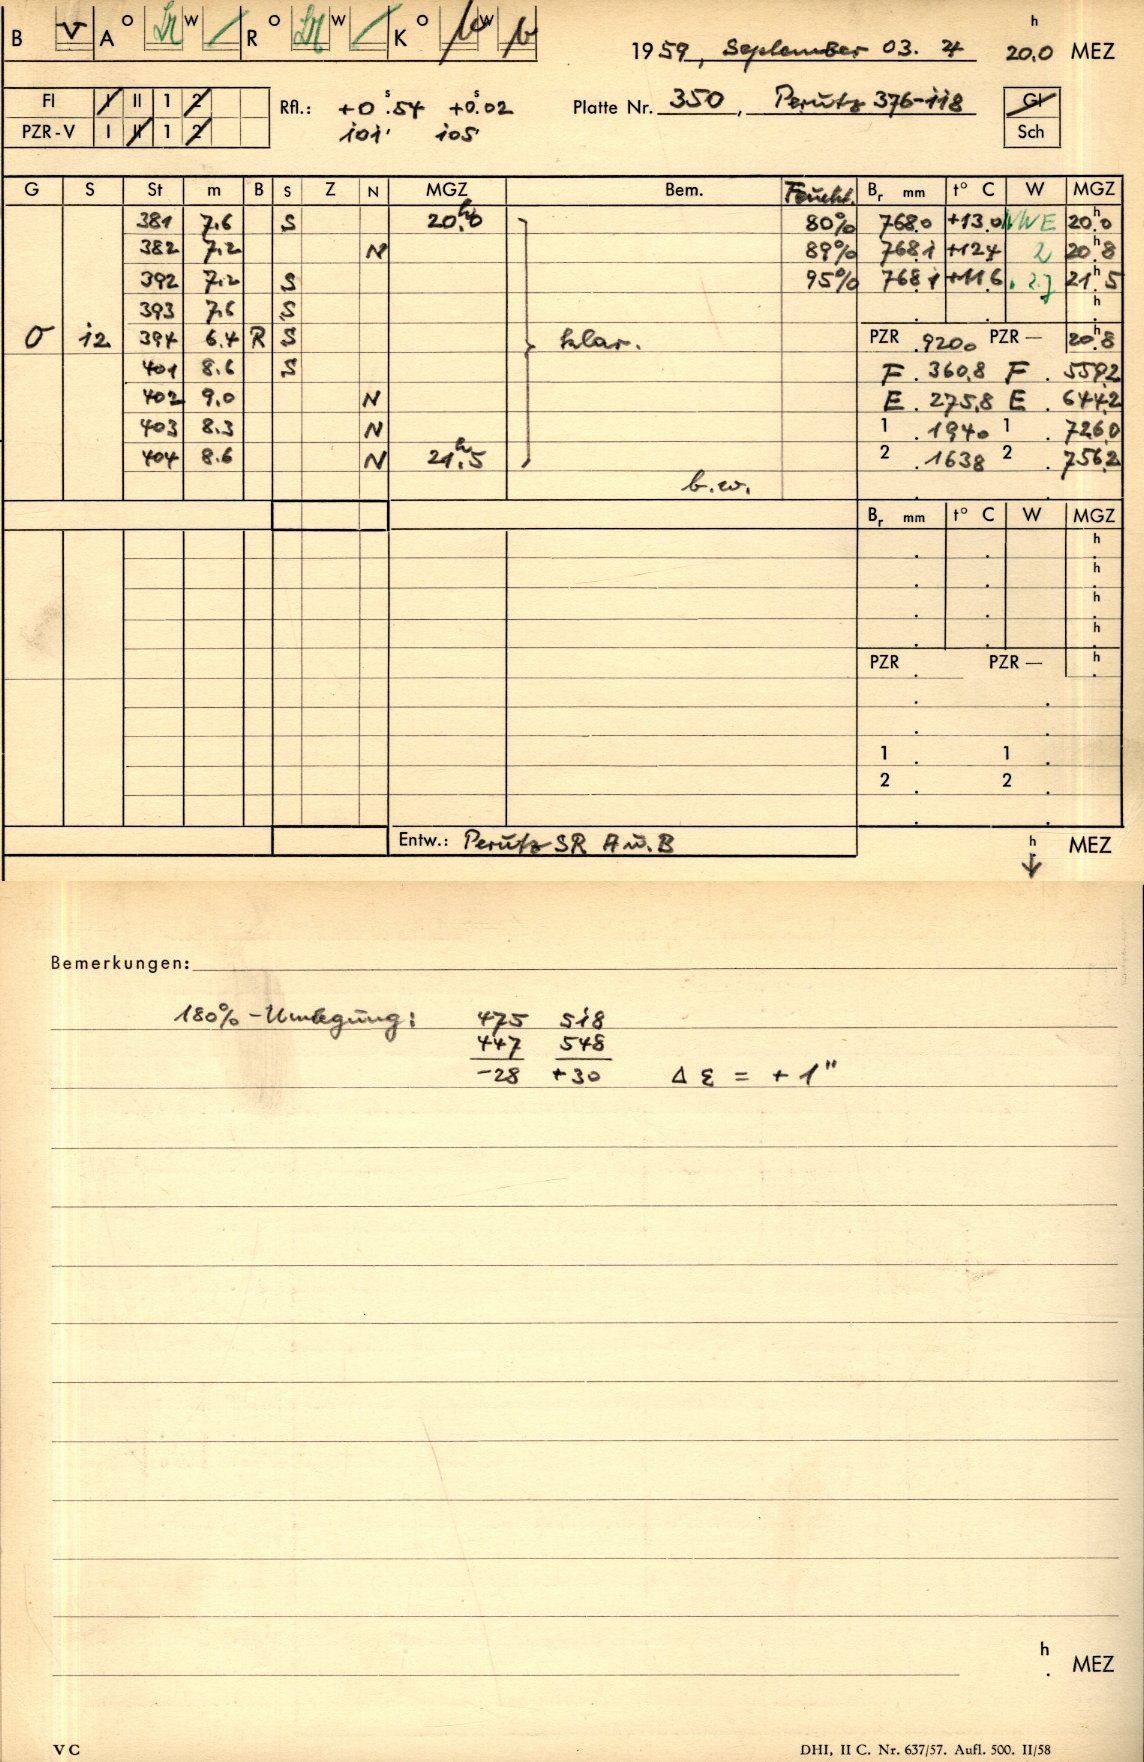 B V A O W R O W K O W
1959, September 03. 20.0 h MEZ
FI I II 1 2
PZR-V I II 1 2
Rfl.: +0 s.54 +0 s.02
101 105
Platte Nr. 350, Perutz 376-118
Gl
Sch
G S St m B S Z N MGZ Bem. Feucht. Br mm t° C W MGZ
381 7.6 S 20h.0 80% 768.0 +13.0 NWE 20h.0
382 7.2 N 89% 768.1 +12.4 2 20h.8
392 7.2 S 95% 768.1 +11.6 21h.5
393 7.6 S h
O 12 394 6.4 R S klar. PZR 920.0 PZR — 20h.8
401 8.6 S F 360.8 F 559.2
402 9.0 N E 275.8 E 644.2
403 8.3 N 1 194.0 1 726.0
404 8.6 N 21h.5 2 163.8 2 756.2
b.w.
Br mm t° C W MGZ
h
h
h
h
PZR PZR — h
1 1
2 2
Entw.: Perutz SR A u. B h MEZ
Bemerkungen:
180% - Umlegung: 475 518
447 548
-28 +30 Δ ε = + 1"
h MEZ
VC DHI, II C. Nr. 637/57. Aufl. 500. II/58